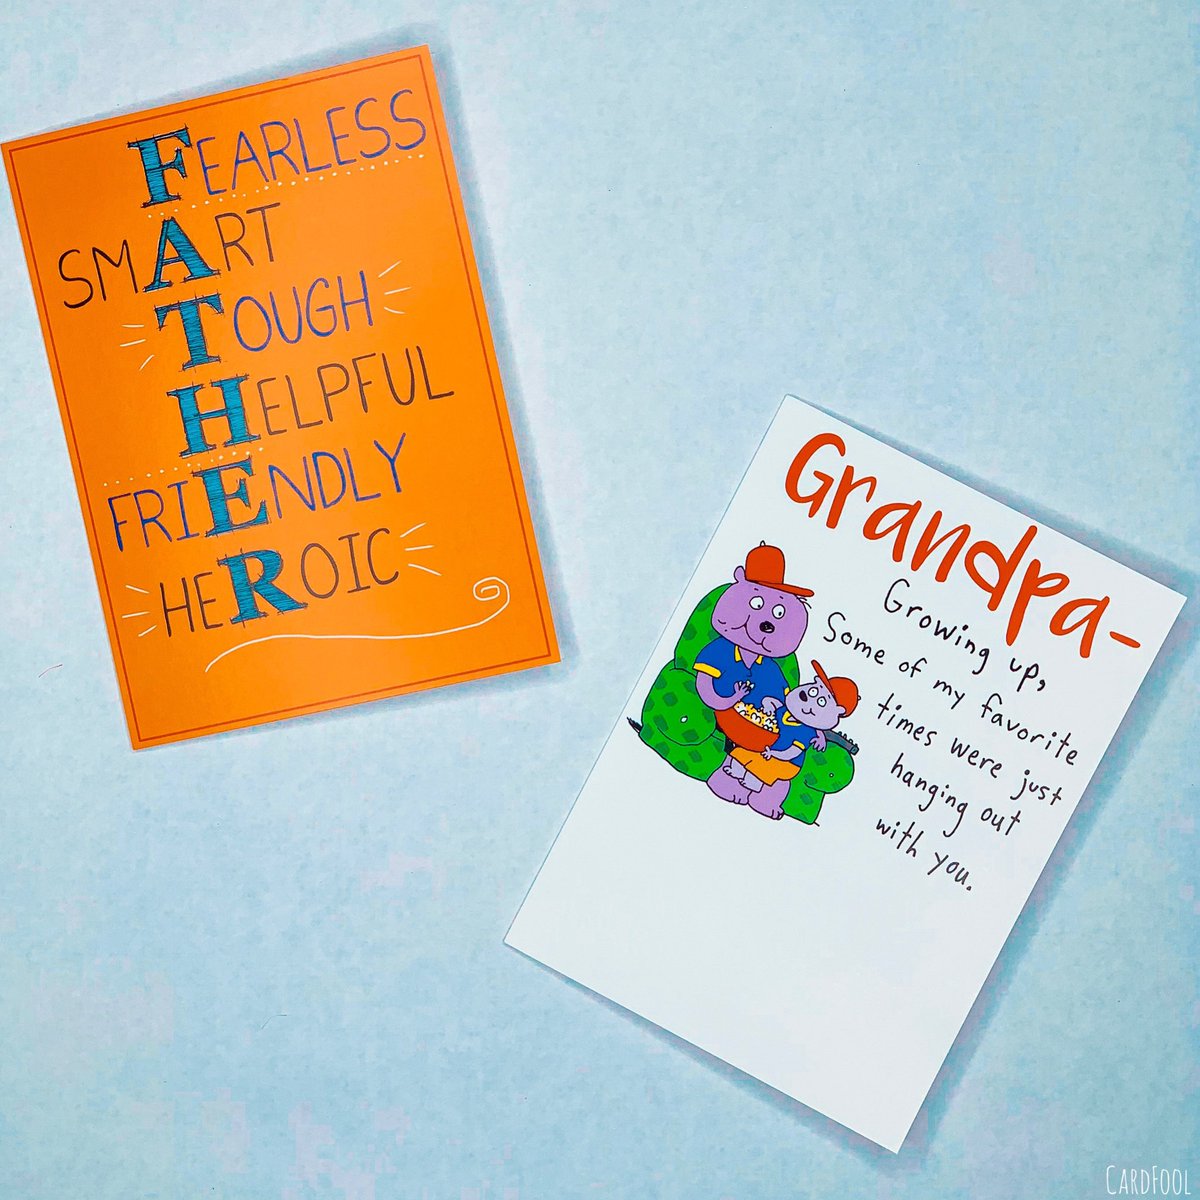 FEARLESS
SMART
TOUGH
HELPFUL
FRIENDLY
HEROIC
Grandpa-
Growing up,
Some of my favorite
times were just
hanging out
with you.
CARDFOOL